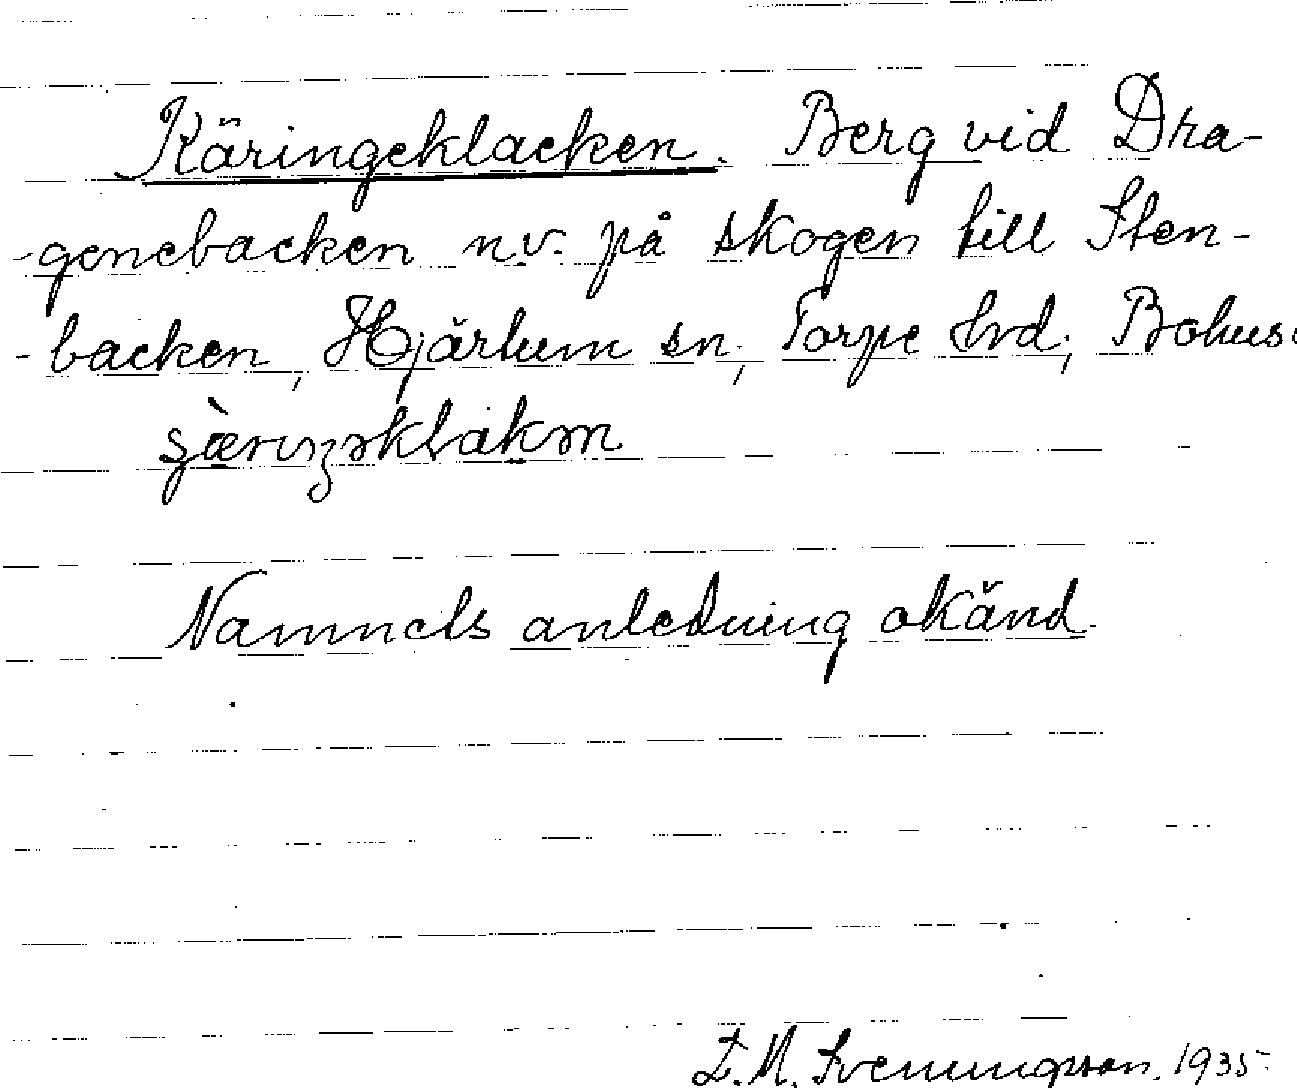 Käringeklacken. Berg vid Dra-
-genebacken n.v. på skogen till Sten-
-backen, Hjärtum sn, Torpe hrd, Bohus.
Namnets anledning okänd.
L. M. Svenungsson. 1935.